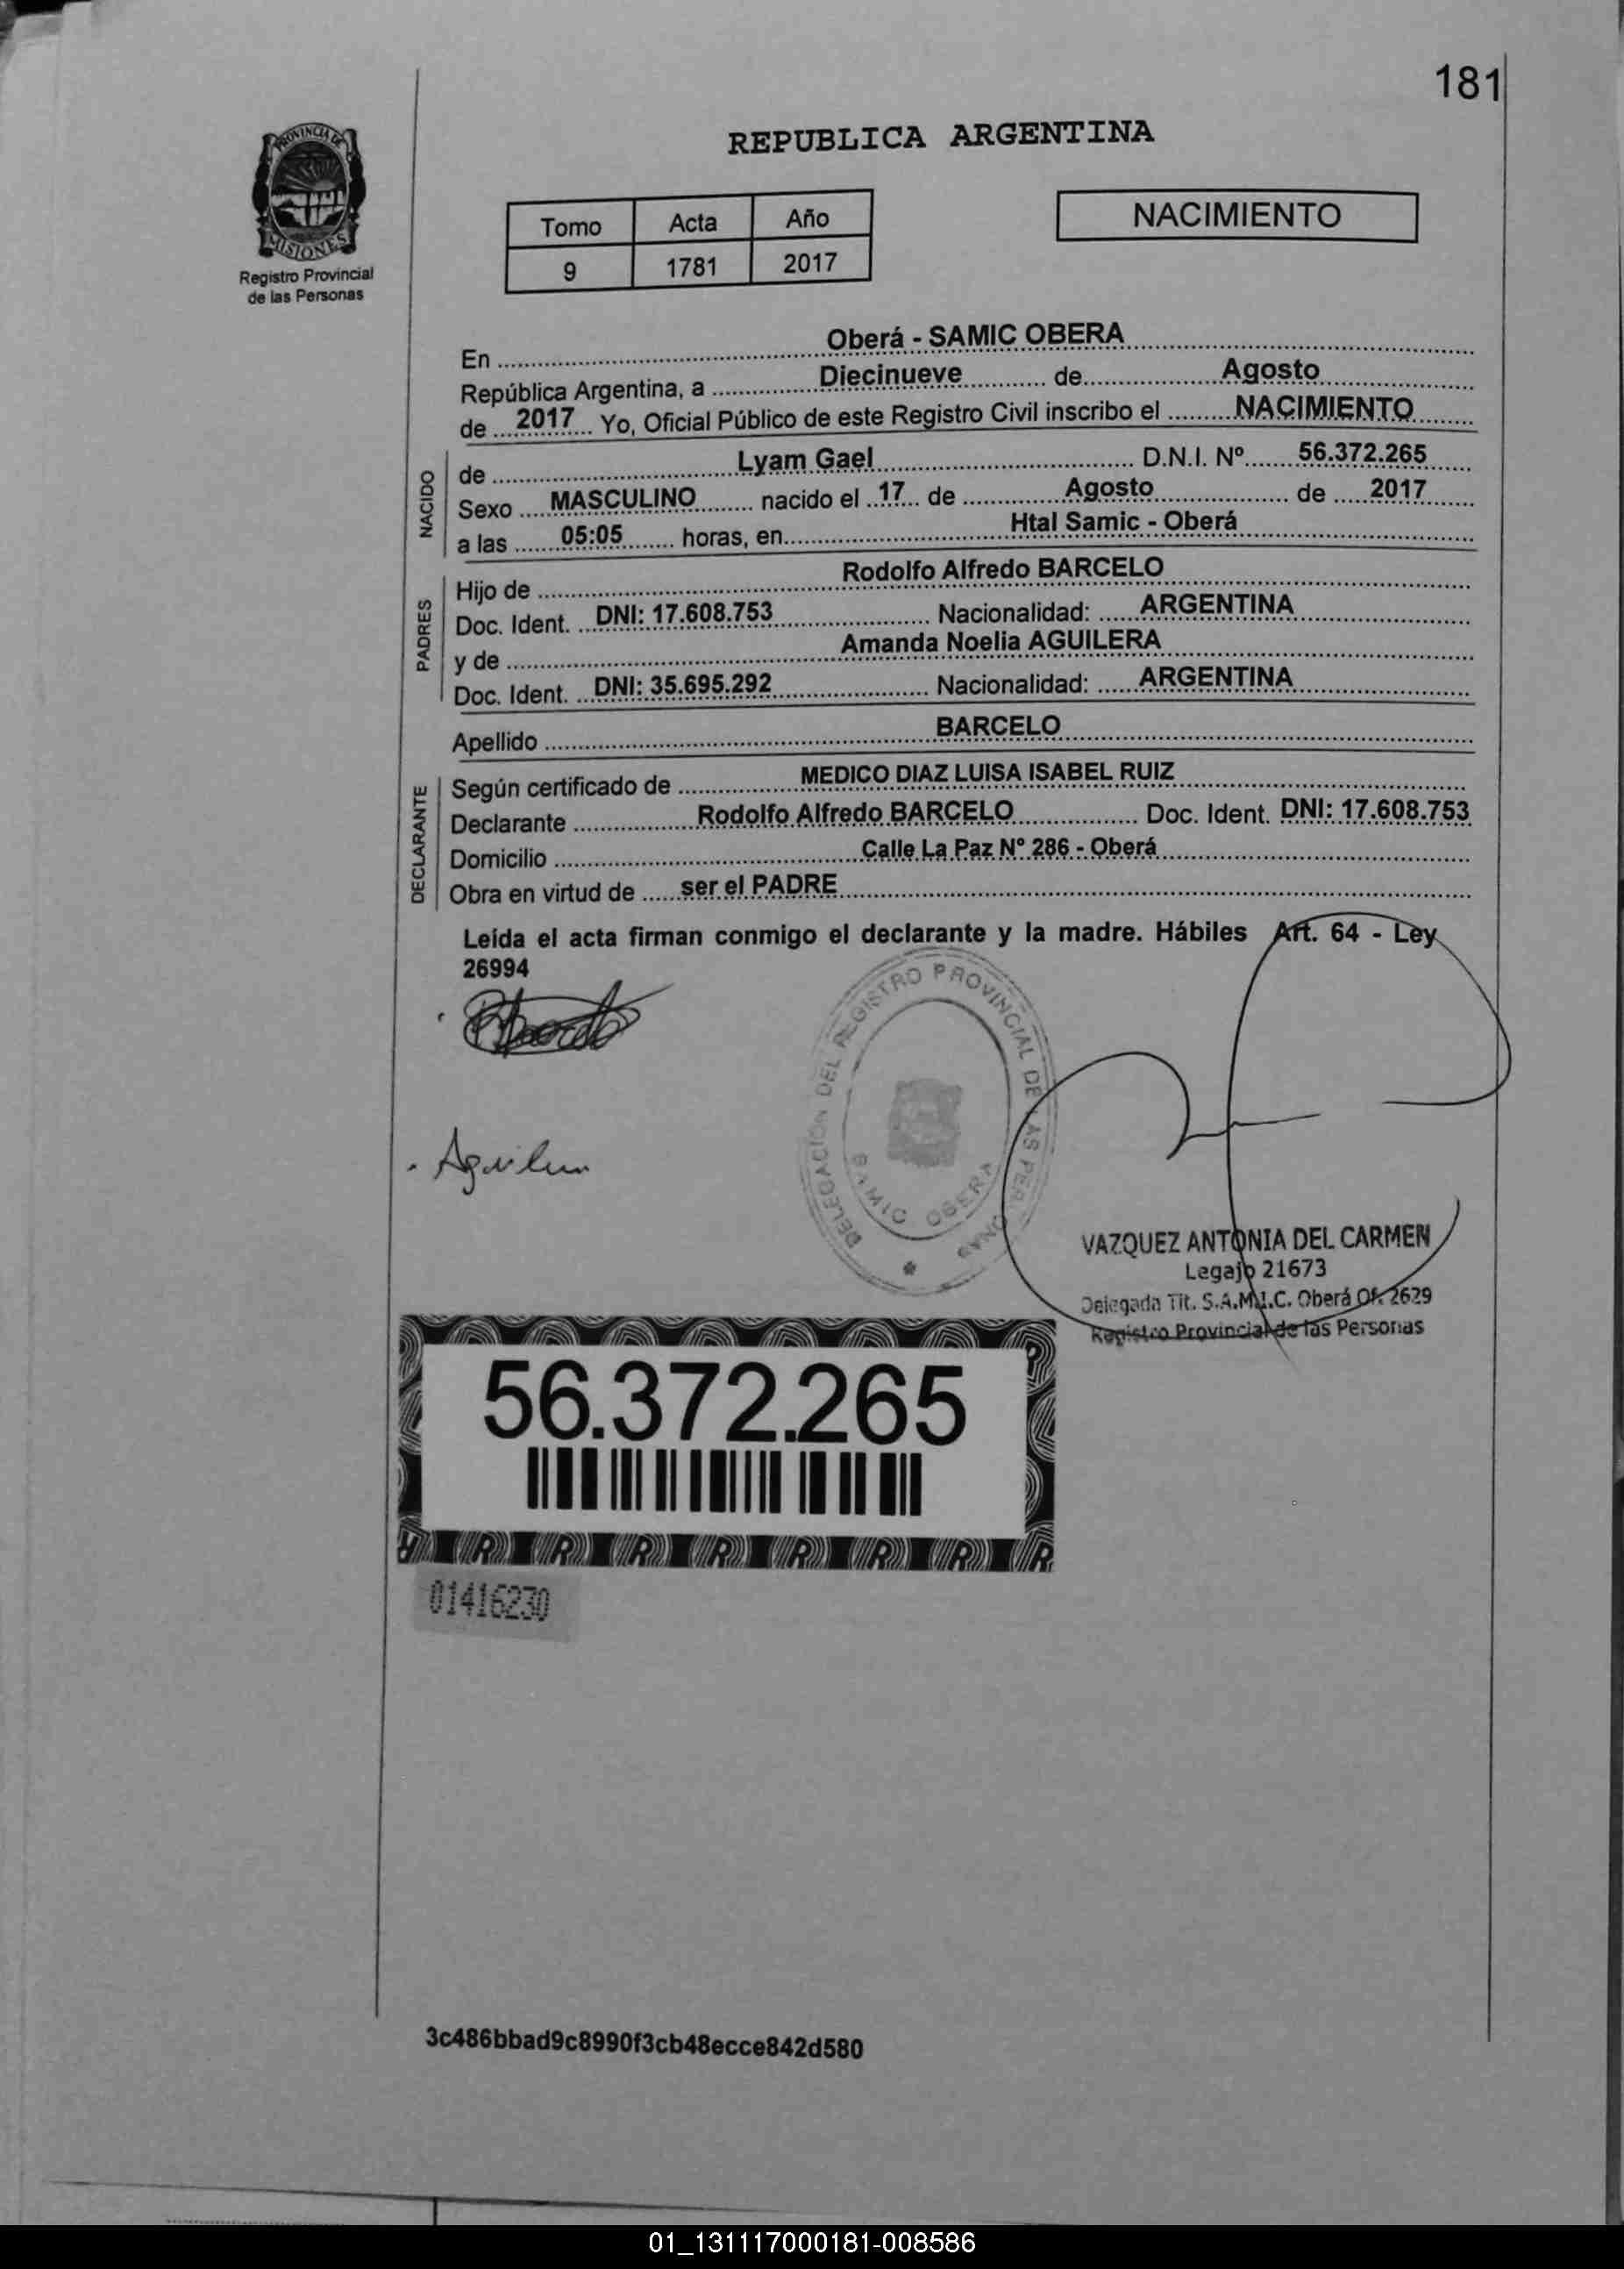 181
PROVINCIA DE
MISIONES
Registro Provincial
de las Personas
REPUBLICA ARGENTINA
Tomo Acta Año
9 1781 2017
NACIMIENTO
En Oberá - SAMIC OBERA
República Argentina, a Diecinueve de Agosto
de 2017 Yo, Oficial Público de este Registro Civil inscribo el NACIMIENTO
NACIDO
de Lyam Gael D.N.I. Nº 56.372.265
Sexo MASCULINO nacido el 17 de Agosto de 2017
a las 05:05 horas, en Htal Samic - Oberá
PADRES
Hijo de Rodolfo Alfredo BARCELO
Doc. Ident. DNI: 17.608.753 Nacionalidad: ARGENTINA
y de Amanda Noelia AGUILERA
Doc. Ident. DNI: 35.695.292 Nacionalidad: ARGENTINA
Apellido BARCELO
DECLARANTE
Según certificado de MEDICO DIAZ LUISA ISABEL RUIZ
Declarante Rodolfo Alfredo BARCELO Doc. Ident. DNI: 17.608.753
Domicilio Calle La Paz Nº 286 - Oberá
Obra en virtud de ser el PADRE
Leída el acta firman conmigo el declarante y la madre. Hábiles Art. 64 - Ley
26994
DELEGACIÓN DEL REGISTRO PROVINCIAL DE LAS PERSONAS
SAMIC OBERA
VAZQUEZ ANTONIA DEL CARMEN
Legajo 21673
Delegada Tit. S.A.M.I.C. Oberá Of. 2629
Registro Provincial de las Personas
56.372.265
R R R R R R R R
01416230
3c486bbad9c8990f3cb48ecce842d580
01_131117000181-008586